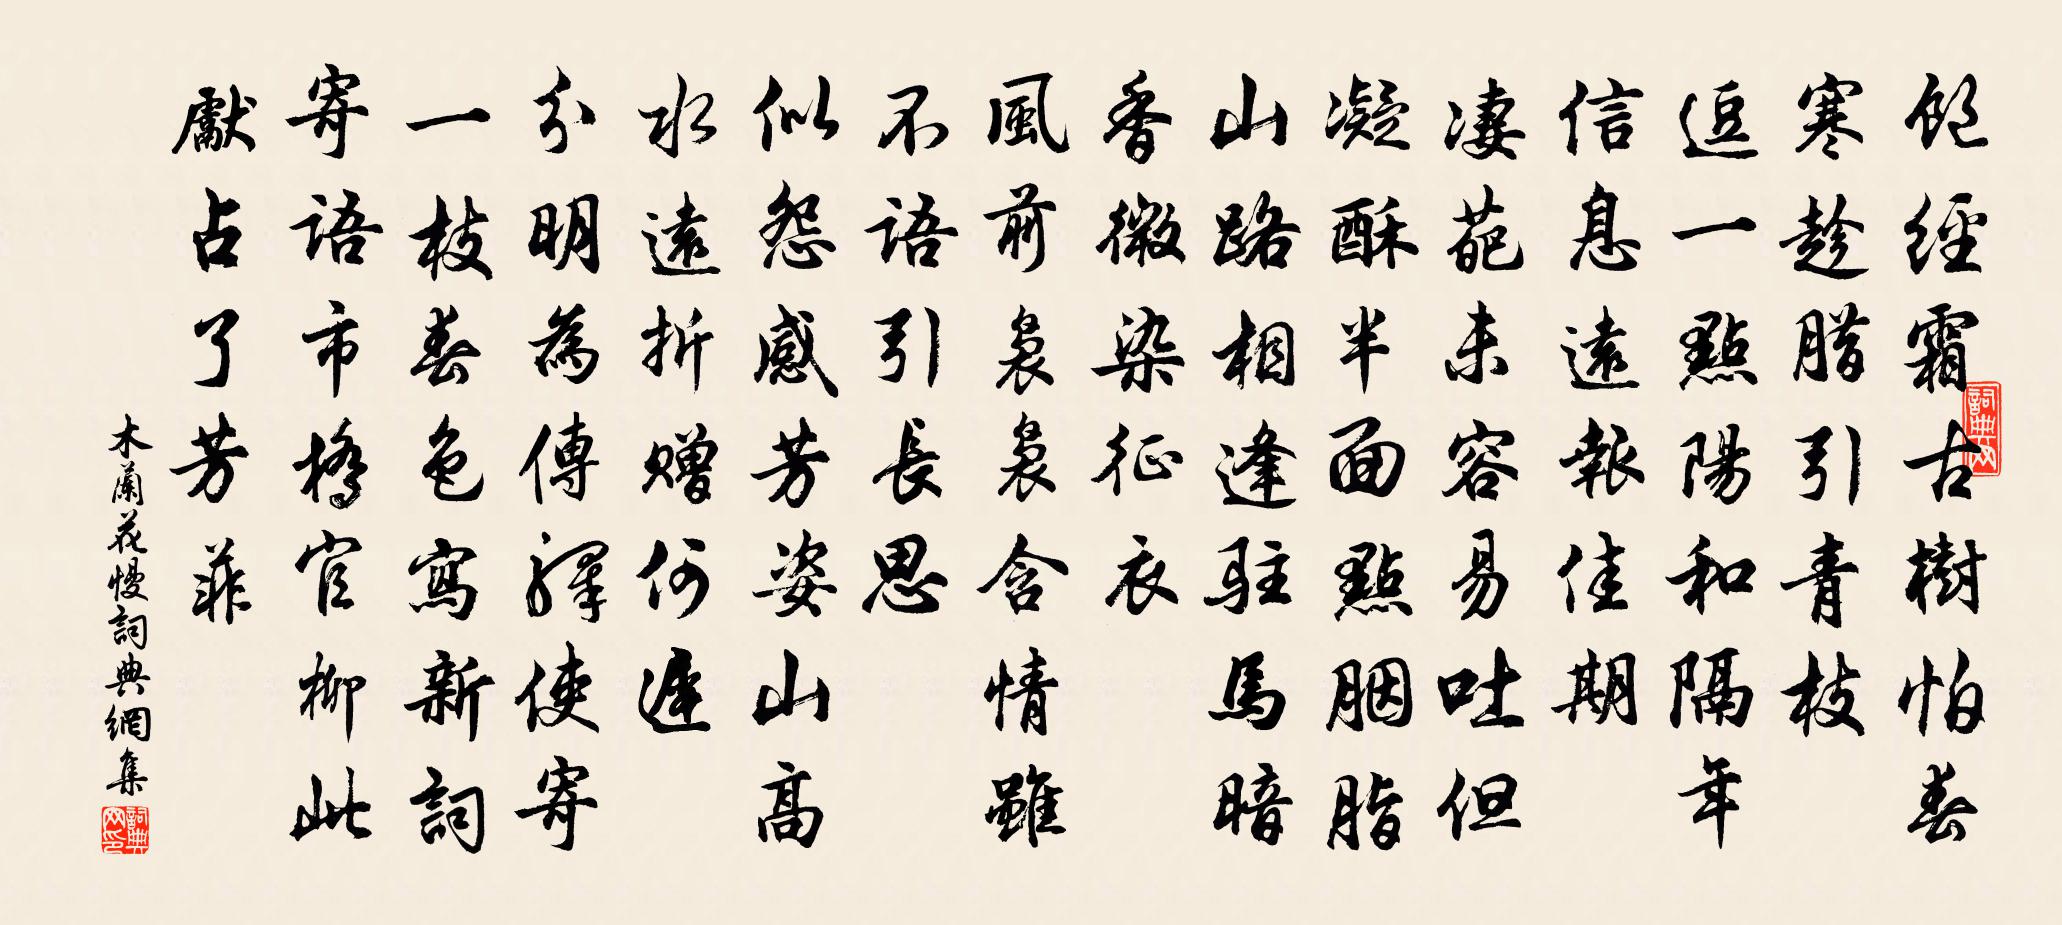 飽經霜古樹怕春
寒趁腊引青枝
逗一點陽和隔年
信息遠報佳期
凄葩未容易吐但
凝酥半面點胭脂
山路相逢駐馬暗
香微染征衣
風前裊裊含情雖
不語引長思
似怨感芳姿山高
水遠折贈何遲
分明為傳驛使寄
一枝春色寫新詞
寄語市橋官柳此
獻占了芳菲
木蘭花慢詞典網集
詞典网
詞典网印